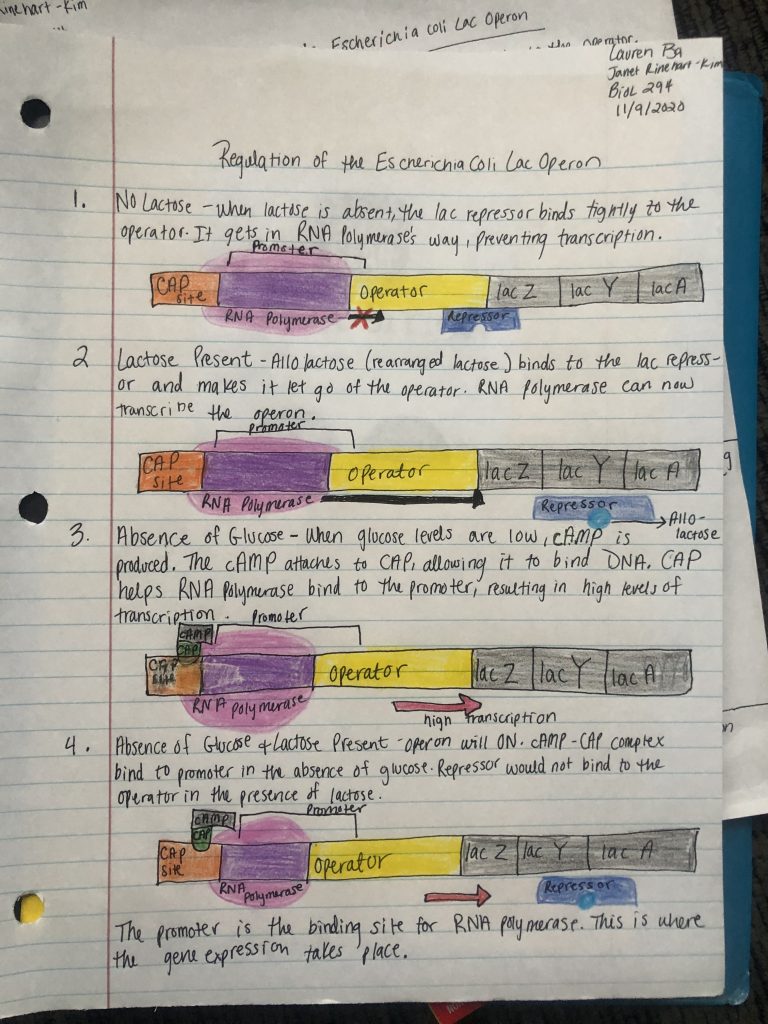 Rinehart-Kim
Escherichia coli Lac Operon
the operator.
Lauren Ba
Janet Rinehart-Kim
Biol 294
11/9/2020
Regulation of the Escherichia Coli Lac Operon
1. No Lactose - When lactose is absent, the lac repressor binds tightly to the
operator. It gets in RNA Polymerase's way, preventing transcription.
Promoter
CAP site
Operator
lac Z
lac Y
lac A
RNA Polymerase
Repressor
2 Lactose Present - Allo lactose (rearranged lactose) binds to the lac repress-
or and makes it let go of the operator. RNA Polymerase can now
transcribe the operon.
promoter
CAP site
Operator
lac Z
lac Y
lac A
RNA Polymerase
Repressor
Allo-
lactose
3. Absence of Glucose - When glucose levels are low, cAMP is
produced. The cAMP attaches to CAP, allowing it to bind DNA. CAP
helps RNA Polymerase bind to the promoter, resulting in high levels of
transcription.
Promoter
cAMP
CAP
CAP site
Operator
lac Z
lac Y
lac A
RNA polymerase
high transcription
4. Absence of Glucose & Lactose Present - operon will ON. cAMP-CAP complex
bind to promoter in the absence of glucose. Repressor would not bind to the
operator in the presence of lactose.
Promoter
cAMP
CAP
CAP site
Operator
lac Z
lac Y
lac A
RNA Polymerase
Repressor
The promoter is the binding site for RNA polymerase. This is where
the gene expression takes place.